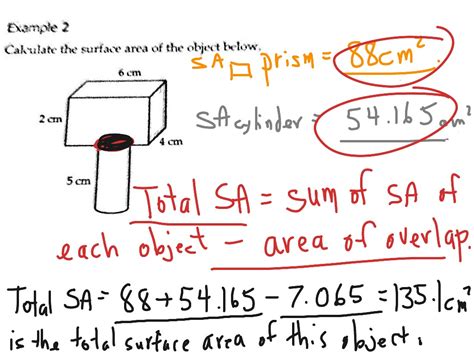 Example 2
Calculate the surface area of the object below.
6 cm
2 cm
4 cm
5 cm
SA prism = 88cm²
SA cylinder = 54.165 cm²
Total SA = sum of SA of
each object - area of overlap.
Total SA = 88+54.165 - 7.065 = 135.1cm²
is the total surface area of this object.